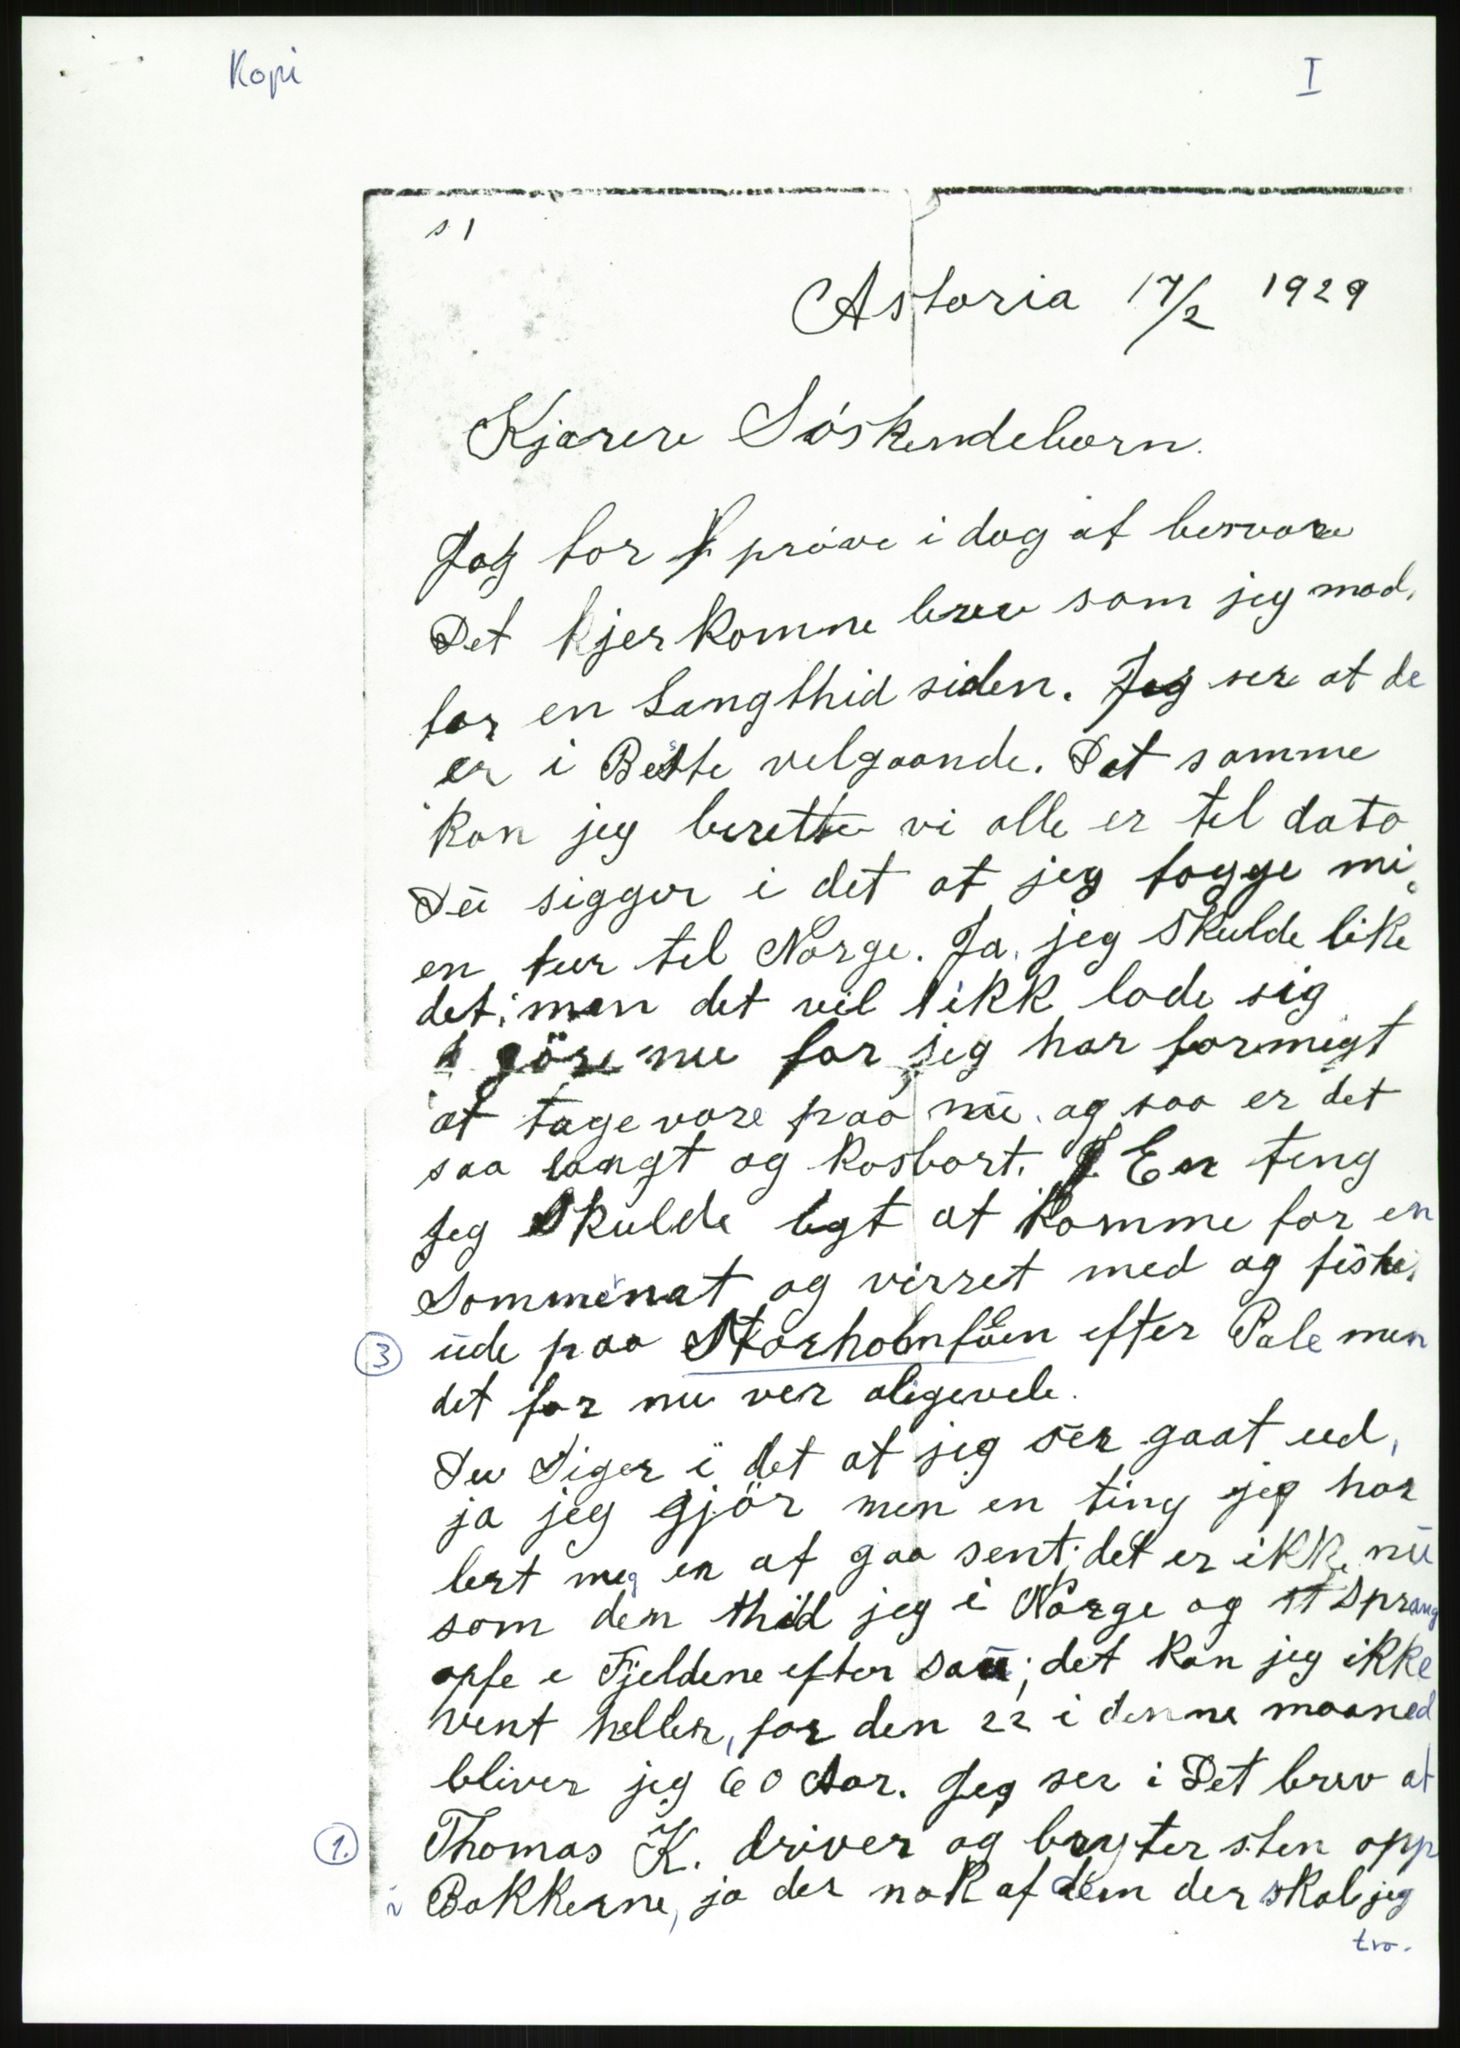 Kopi
I
s 1
Astoria 17/2 1929
Kjærere Söskendebørn.
Jag for pröve i dag at besvare
Det kjerkomne brev som jeg mod.
for en Langthid siden. Jeg ser at de
er i Beste velgaande. Det samme
kan jeg berette vi alle er tel dato
Dü sigger i det at jeg togge mi
en tur tel Norge. Ja, jeg skulde like
det; men det vil ikk lade sig
göre nu for jeg har formegt
at tage vare paa nü. og saa er det
saa langt og kosbart. En ting
jeg Skulde lygt at komme for en
Sommernat og virret med og fiske,
3 üde paa Storholmfluen efter Pale men
det for nu ver aligevele.
Du Siger i det at jeg ser gaat ud,
ja jeg gjör men en ting jeg har
lert meg er at gaa sent; det er ikke nü
som den thid jeg i Norge og sprang
opfe e Fjeldene efter saü; det kan jeg ikke
vent heller, for den 22 i denne maaned
bliver jeg 60 Aar. Jeg ser i Det brev at
1. Thomas K. driver og bryter sten opp
i Bakkerne, ja der nok af dem der skal jeg
tro.